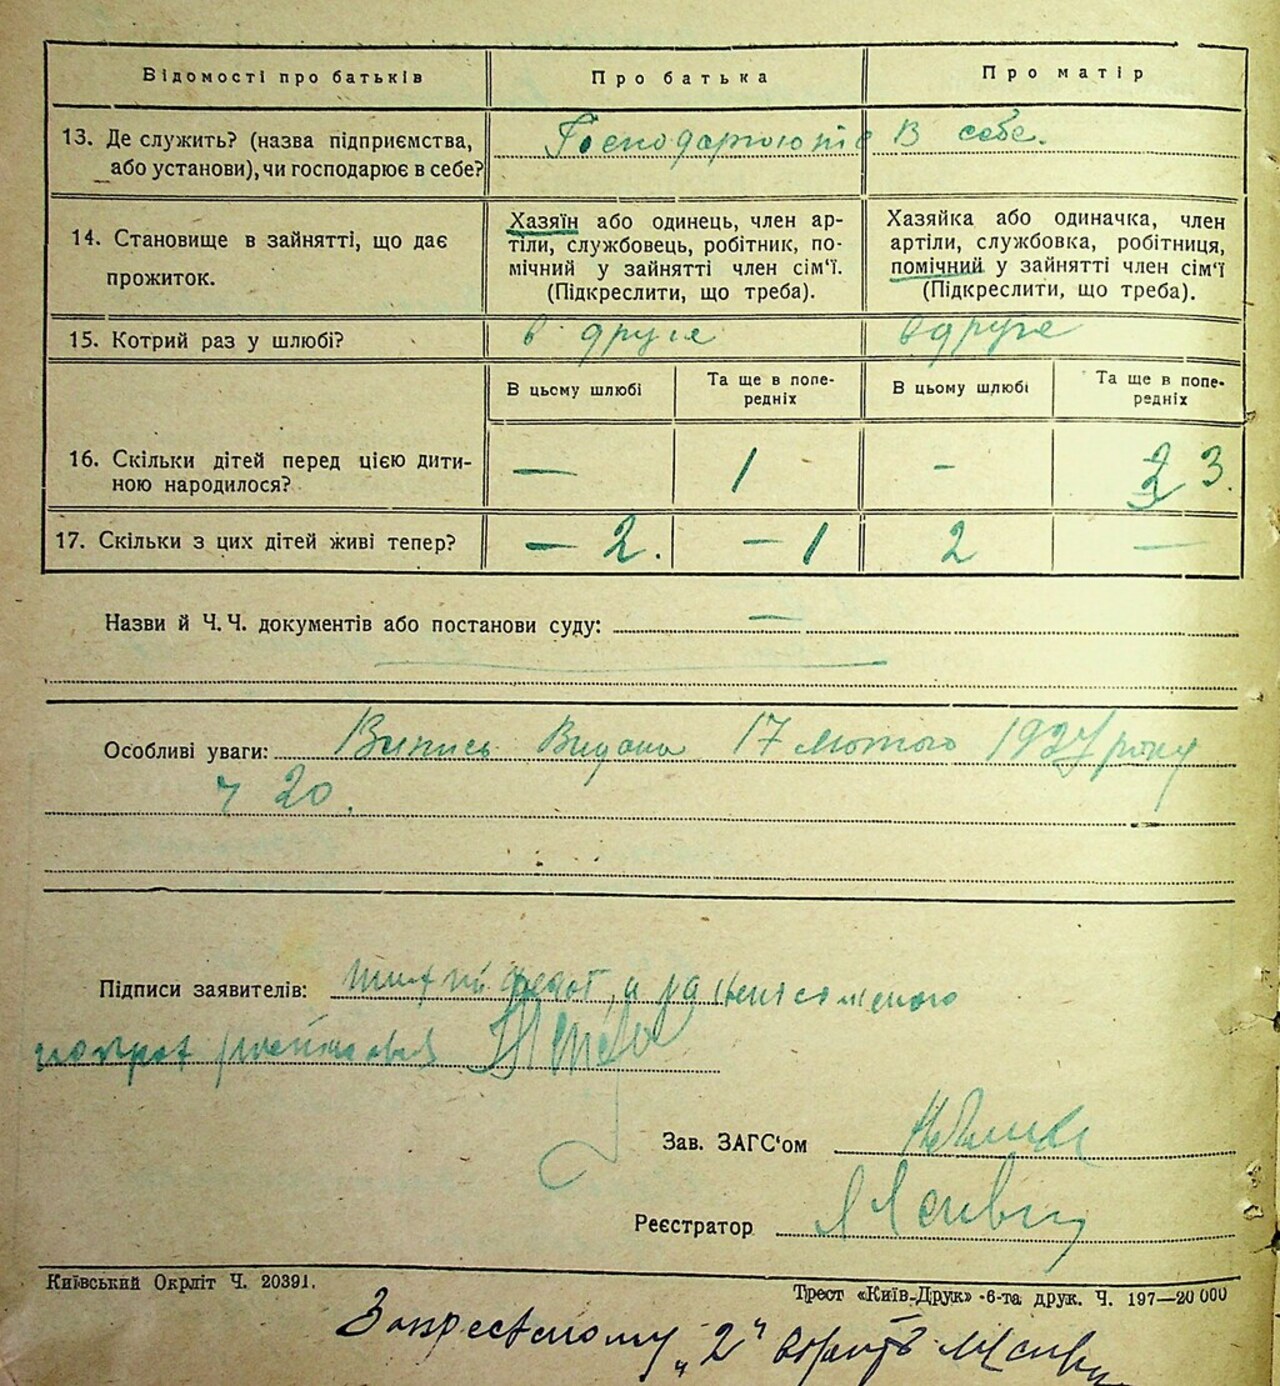 Відомості про батьків
Про батька
Про матір
13. Де служить? (назва підприємства, або установи), чи господарює в себе?
Господарюють в себе.
14. Становище в зайнятті, що дає прожиток.
Хазяїн або одинець, член ар-
тіли, службовець, робітник, по-
мічний у зайнятті член сім'ї.
(Підкреслити, що треба).
Хазяйка або одиначка, член
артіли, службовка, робітниця,
помічний у зайнятті член сім'ї
(Підкреслити, що треба).
15. Котрий раз у шлюбі?
в друге
вдруге
В цьому шлюбі
Та ще в попе-
редніх
В цьому шлюбі
Та ще в попе-
редніх
16. Скільки дітей перед цією дити-
ною народилося?
— 1 - 2 3.
17. Скільки з цих дітей живі тепер?
— 2. — 1 2 —
Назви й Ч. Ч. документів або постанови суду: —
Особливі уваги: Випись Видана 17 лютого 1927 року
ч 20.
Підписи заявителів:
Зав. ЗАГС'ом
Реєстратор
Київський Окрліт Ч. 20391.
Трест «Київ-Друк» -6-та друк. Ч. 197—20 000
"2"